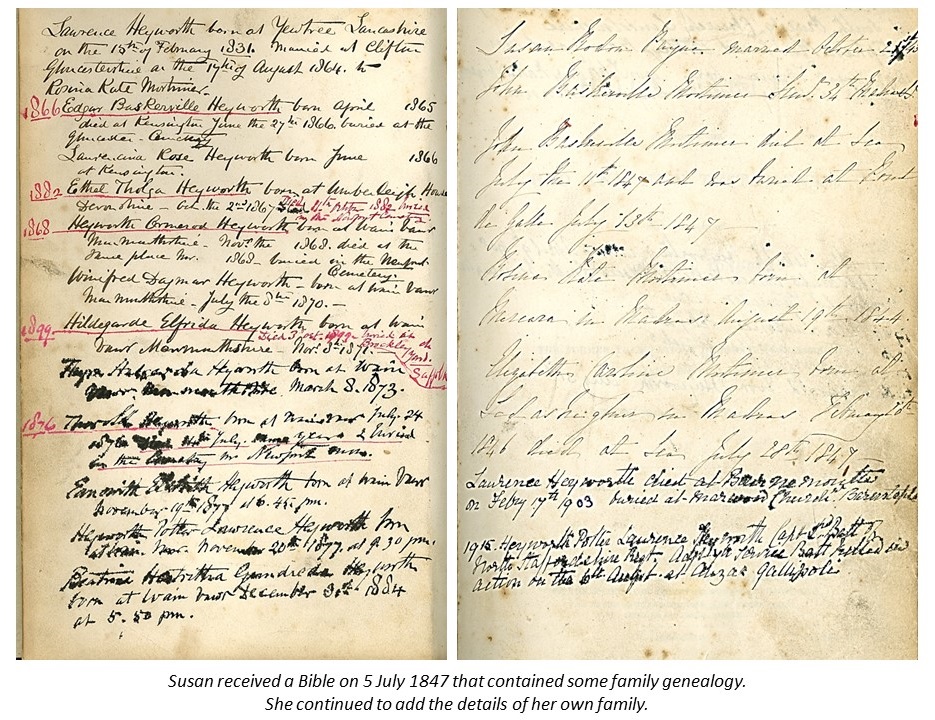 Lawrence Heyworth born at Yewtree Lancashire
on the 15th of February 1831. Married at Clifton
Gloucestershire on the 17th of August 1864. to
Rosina Kate Mortimer.
1866 Edgar Baskerville Heyworth born April 1865
died at Kensington June the 27th 1866. buried at the
Cemetery
Laurencina Rose Heyworth born June 1866
at Kensington.
1882 Ethel Tholga Heyworth born at Umberleigh House
Devonshire - oct. the 2nd 1867 Died 1882 buried
in the Newport
1868 Heyworth Ormerod Heyworth born at Wain Vawr
Monmouthshire - Novr. the 1868. died at the
same place Nov. 1868 - buried in the Newport
Cemetery.
Winifred Dagmar Heyworth - born at Wain Vawr
Monmouthshire - July the 8th 1870. -
1899. Hildegarde Elfrida Heyworth born at Wain
Vawr Monmouthshire Novr. 8th 1871. Died 1899 buried at
Brockley
Suffolk
Heyworth born at Wain
Vawr March 8. 1873.
1876 Heyworth born at Wain Vawr July 24
1876 July & buried
in the Cemetery Newport
Heyworth born at Wain Vawr
November 19th 1877 at 6.45 pm.
Heyworth Potter Lawrence Heyworth born
at Wain Vawr November 20th 1877. at 9.30 pm.
Beatrice Gundreda Heyworth
born at Wain Vawr December 1884
at 5.50 pm.
Susan married October
John Baskerville Mortimer
John Baskerville Mortimer died at Sea
July the 1847 and was buried at Point
de Galle July 13th 1847
Rosina Kate Mortimer born at
Mercara in Madras August 19th 1844
Elizabeth Caroline Mortimer born at
in Madras February
1846 died at Sea July 28th 1847
Lawrence Heyworth died at Bournemouth
on Febry 17th 1903 buried at Marwood Church Barnstaple
1915. Heyworth Potter Lawrence Heyworth Capt.
North Staffordshire Regt. Service Batt killed in
action on the 6th August at Anzac Gallipoli
Susan received a Bible on 5 July 1847 that contained some family genealogy.
She continued to add the details of her own family.